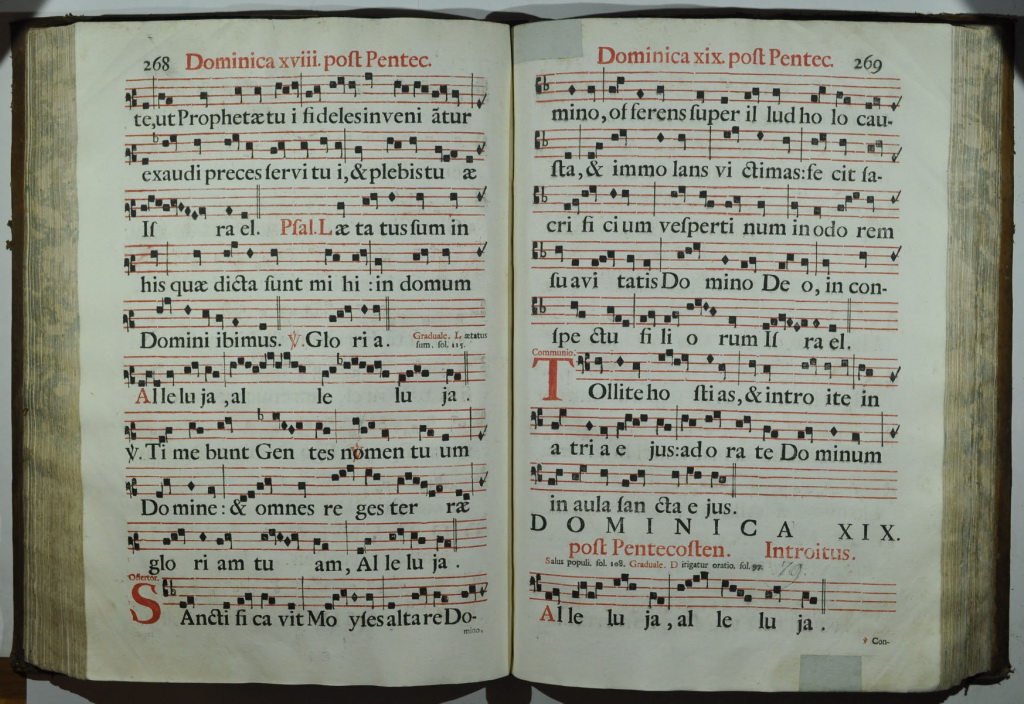 268 Dominica xviii. poſt Pentec.
te, ut Prophetæ tu i fi deles inveni ãtur
exaudi preces ſervi tu i, & plebis tu æ
Iſ ra el. Pſal. L æ ta tus ſum in
his quæ dicta ſunt mi hi : in domum
Domini ibimus. ℣. Glo ri a. Graduale. L ætatus
ſum. fol. 115.
Al le lu ja , al le lu ja .
℣. Ti me bunt Gen tes nomen tu um
Do mine : & omnes re ges ter ræ
glo ri am tu am, Al le lu ja .
Offertor.
SAncti fi ca vit Mo yſes altare Do-
mino,
Dominica xix. poſt Pentec. 269
mino, of ferens ſuper il lud ho lo cau-
ſta, & immo lans vi ctimas: fe cit ſa-
cri fi ci um veſperti num in odo rem
ſu avi tatis Do mino De o, in con-
ſpe ctu fi li o rum Iſ ra el.
Communio.
TOllite ho ſti as, & intro ite in
a tri a e jus: ad o ra te Do minum
in aula ſan cta e jus.
DOMINICA XIX.
poſt Pentecoſten. Introitus.
Salus populi. fol. 168. Graduale. D irigatur oratio. fol. 79.
Al le lu ja , al le lu ja .
℣ Con-